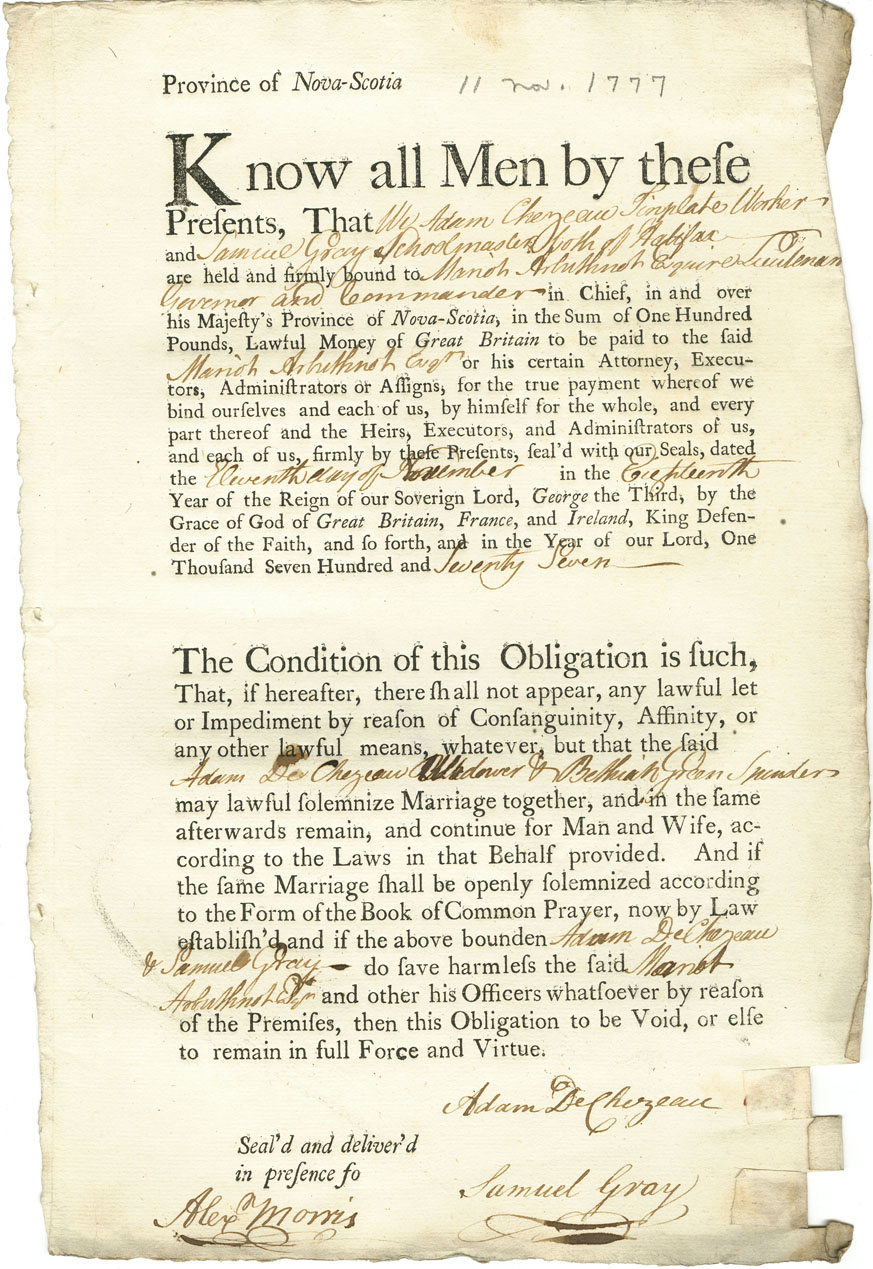 Province of Nova-Scotia 11 Nov. 1777
Know all Men by theſe
Preſents, That We Adam Chezeau Tinplate Worker
and Samuel Gray Schoolmaster both of Halifax
are held and firmly bound to Mariot Arbuthnot Esquire Lieutenan
Governor and Commander in Chief, in and over
his Majeſty's Province of Nova-Scotia, in the Sum of One Hundred
Pounds, Lawful Money of Great Britain to be paid to the said
Mariot Arbuthnot Esqr or his certain Attorney, Execu-
tors, Adminiſtrators or Aſſigns, for the true payment whereof we
bind ourselves and each of us, by himself for the whole, and every
part thereof and the Heirs, Executors, and Adminiſtrators of us,
and each of us, firmly by theſe Preſents, ſeal'd with our Seals, dated
the Eleventh day of November in the Eighteenth
Year of the Reign of our Soverign Lord, George the Third, by the
Grace of God of Great Britain, France, and Ireland, King Defen-
der of the Faith, and ſo forth, and in the Year of our Lord, One
Thouſand Seven Hundred and Seventy Seven
The Condition of this Obligation is ſuch,
That, if hereafter, there ſhall not appear, any lawful let
or Impediment by reaſon of Conſanguinity, Affinity, or
any other lawful means, whatever, but that the ſaid
Adam DeChezeau Widower & Bethiah Green Spinster
may lawful ſolemnize Marriage together, and in the ſame
afterwards remain, and continue for Man and Wife, ac-
cording to the Laws in that Behalf provided. And if
the ſame Marriage ſhall be openly ſolemnized according
to the Form of the Book of Common Prayer, now by Law
eſtabliſh'd and if the above bounden Adam DeChezeau
& Samuel Gray do ſave harmleſs the ſaid Mariot
Arbuthnot Esqr and other his Officers whatſoever by reaſon
of the Premiſes, then this Obligation to be Void, or elſe
to remain in full Force and Virtue.
Adam DeChezeau
Seal'd and deliver'd
in preſence fo
Samuel Gray
Alexr Morris